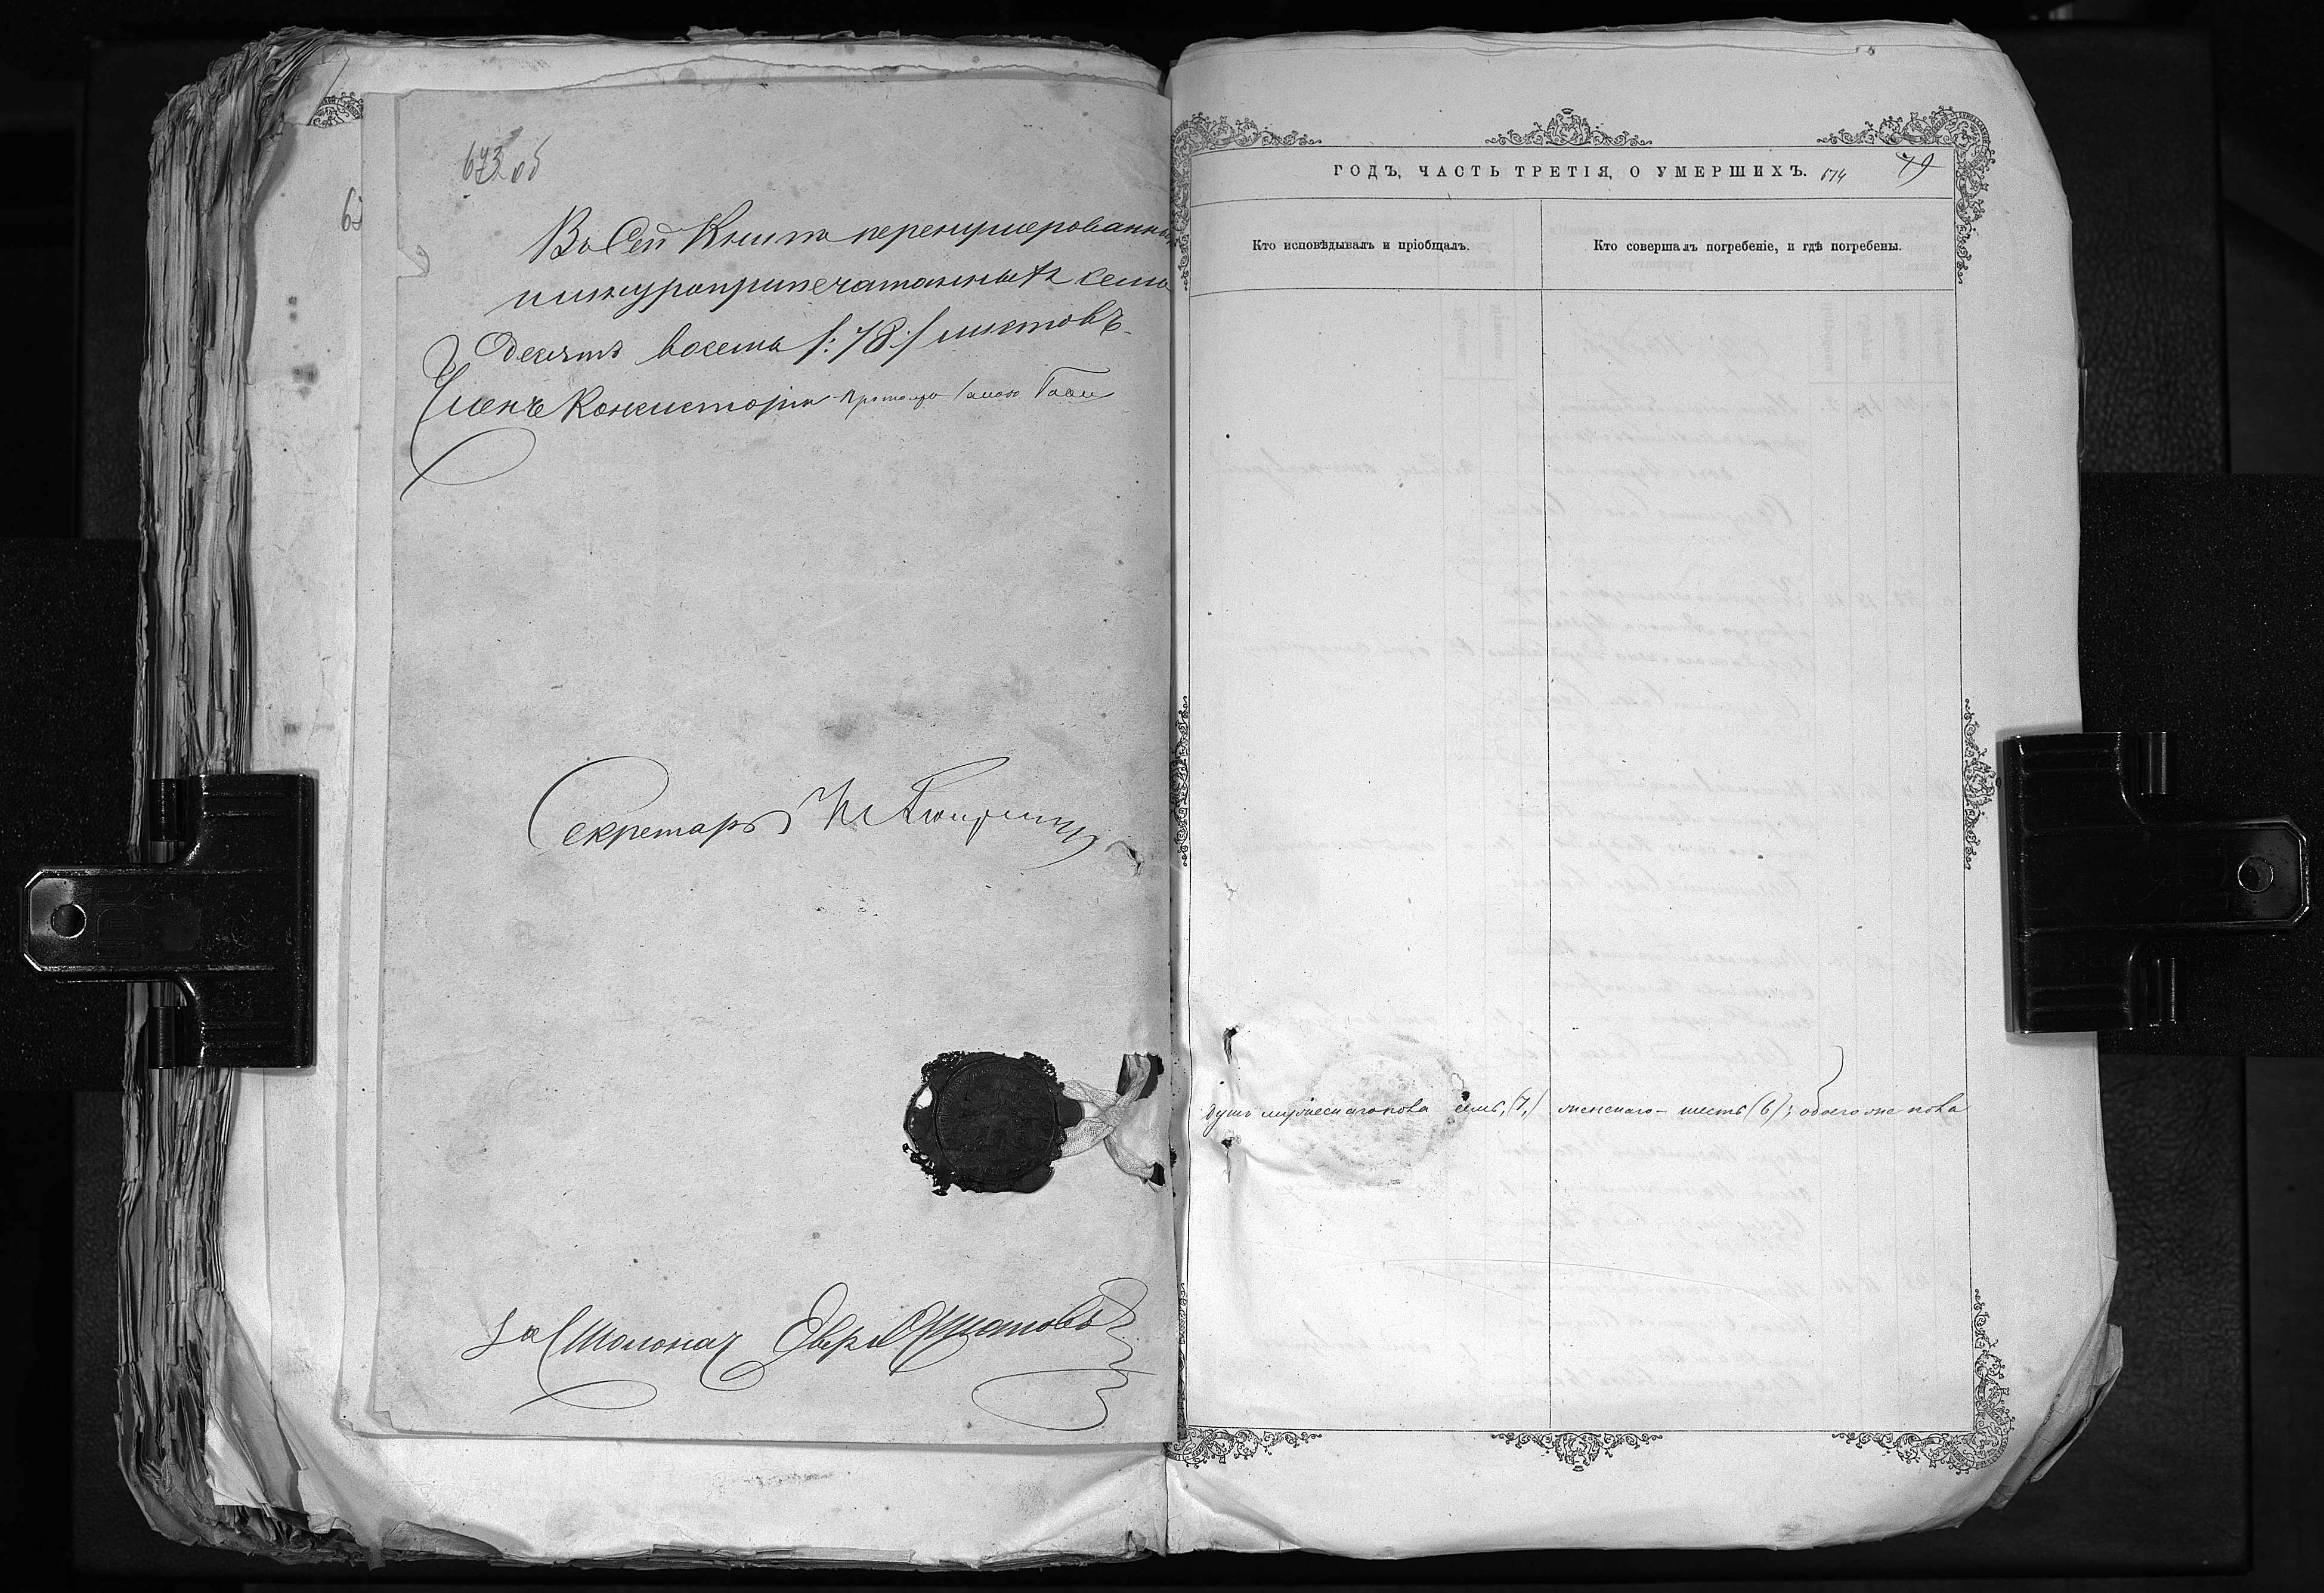 673 об
Въ Сей Книгѣ перенумерованны
шнуроприпечатанныхъ семь
десятъ восемь /:78:/ листовъ.
Членъ Консисторіи
Секретарь
За Столонач
ГОДЪ, ЧАСТЬ ТРЕТІЯ, О УМЕРШИХЪ. 674 79
Кто исповѣдывалъ и пріобщалъ.
Кто совершалъ погребеніе, и гдѣ погребены.
душъ мужескаго пола семь, (7,) женскаго – шесть (6); обоего же пола